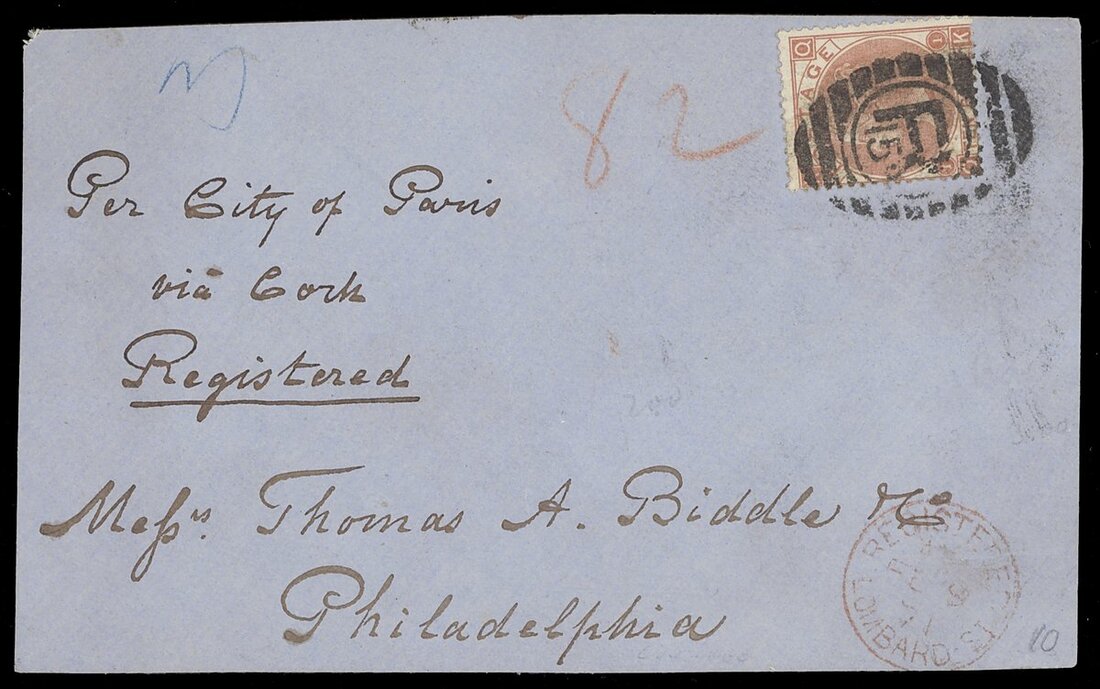 82
Q AGE 1 K
F 15
Per City of Paris
via Cork
Registered
Mefsrs Thomas A. Biddle & Co
Philadelphia
REGISTERED
LOMBARD ST
10